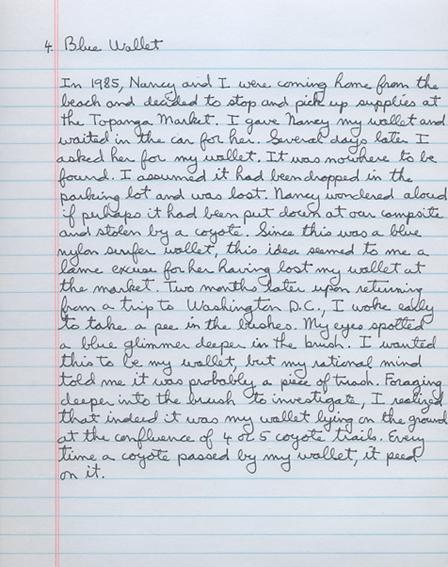 4. Blue Wallet
In 1985, Nancy and I were coming home from the
beach and decided to stop and pick up supplies at
the Topanga Market. I gave Nancy my wallet and
waited in the car for her. Several days later I
asked her for my wallet. It was nowhere to be
found. I assumed it had been dropped in the
parking lot and was lost. Nancy wondered aloud
if perhaps it had been put down at our campsite
and stolen by a coyote. Since this was a blue
nylon surfer wallet, this idea seemed to me a
lame excuse for her having lost my wallet at
the market. Two months later upon returning
from a trip to Washington D.C., I woke early
to take a pee in the bushes. My eyes spotted
a blue glimmer deeper in the brush. I wanted
this to be my wallet, but my rational mind
told me it was probably a piece of trash. Foraging
deeper into the brush to investigate, I realized
that indeed it was my wallet lying on the ground
at the confluence of 4 or 5 coyote trails. Every
time a coyote passed by my wallet, it peed
on it.